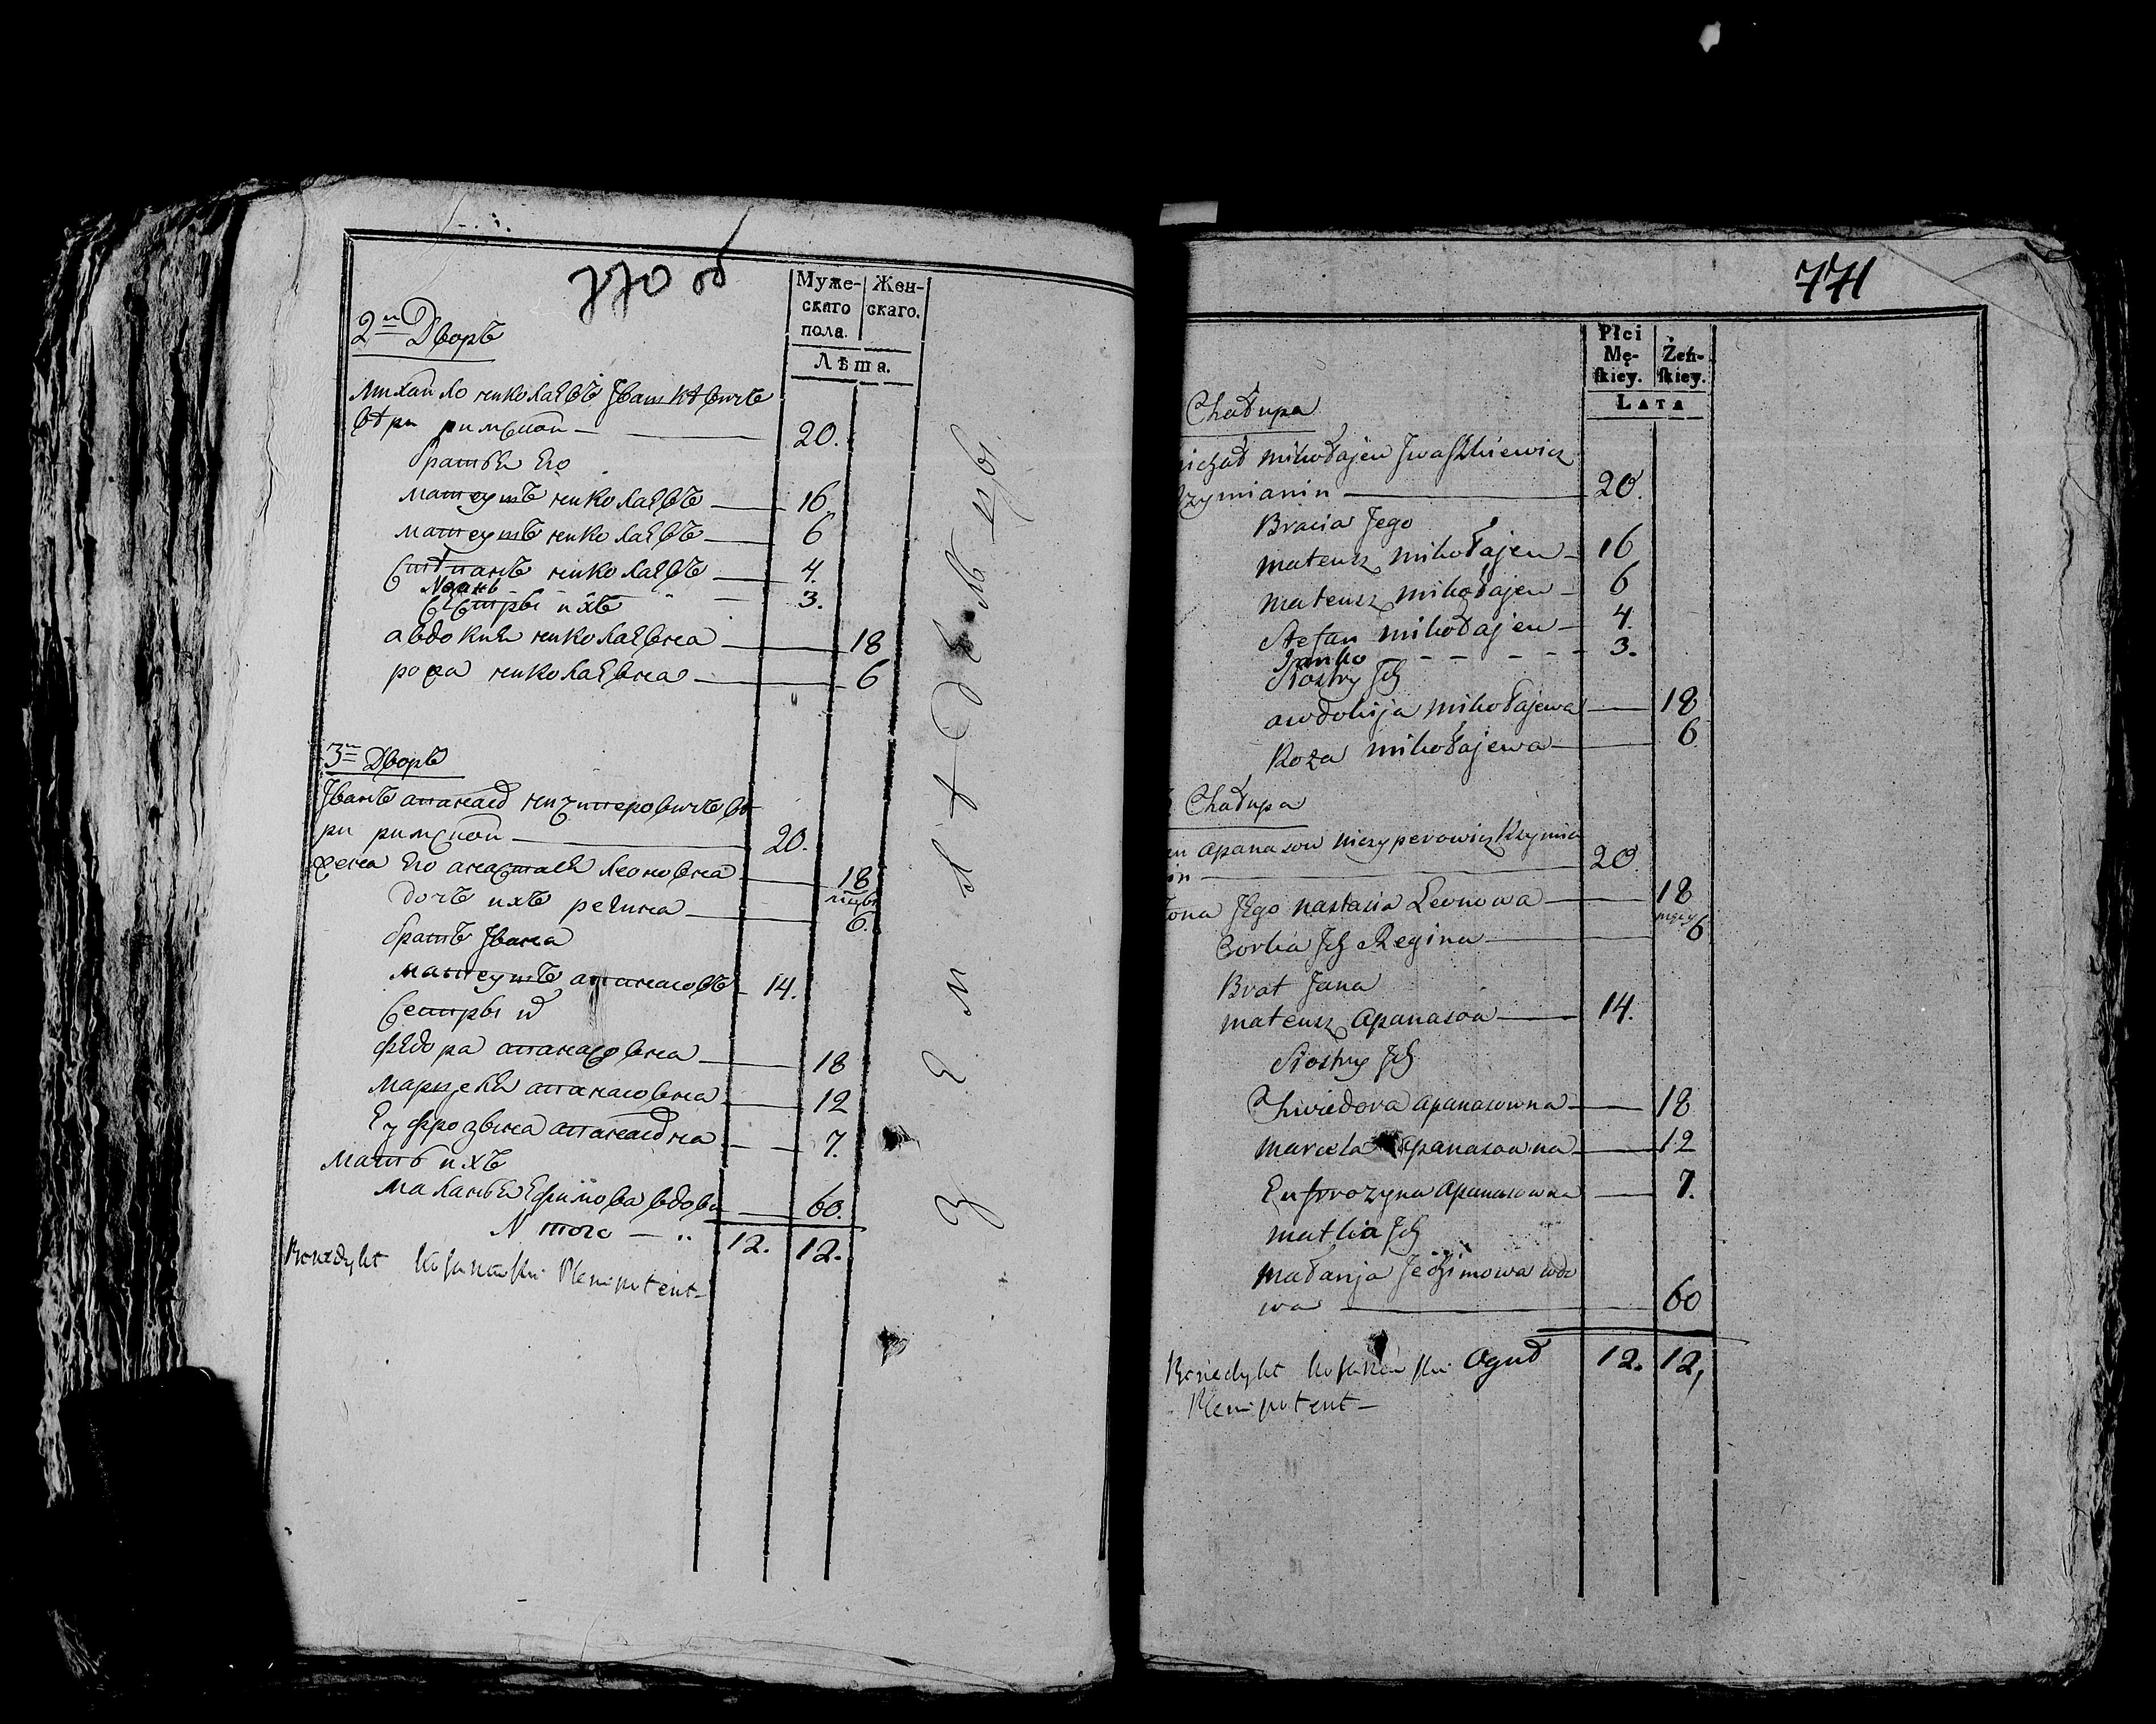 770 об
Муже-
скаго
пола.
Жен-
скаго.
Лѣта.
2й Дворъ
Михайло николаевъ Ивашкѣвичъ
вѣри римской — 20.
братья Его
матеушъ николаевъ — 16
матеушъ николаевъ — 6
Стѣпанъ николаевъ — 4.
3.
Сестры ихъ
авдокия николаевна — 18
рожа николаевна — 6
3й Дворъ
Иванъ апанасов ничыперовичъ вѣ-
ри римской — 20.
жена Его анастасия леоновна — 18
дочь ихъ регина — 6.
братъ Ивана
матеушъ апанасовъ — 14.
Сестры
федора апанасовна — 18
марцеля апанасовна — 12
Еуфрозына апанасовна — 7.
мать ихъ
маланья Ефимова вдова — 60.
Итого — 12. 12.
Plenipotent
771
Płci
Mę-
ſkiey.
Żeń-
ſkiey.
Lata
Chałupa
michał mikołajew Jwaſzkiewicz
Rzymianin — 20.
Bracia Jego
mateusz mikołajew — 16
mateusz mikołajew — 6
Stefan mikołajew — 4.
Janko — 3.
Siostry Jch
awdokija mikołajewa — 18
Roza mikołajewa — 6
3 Chałupa
apanasow niczyperowicz Rzymia
nin — 20
Zona Jego nastasia Leonowa — 18
Corka Jch Regina — 6
Brat Jana
mateusz apanasow — 14.
Siostry Jch
Chwiedora apanasowna — 18
marcela apanasowna — 12
Eufrozyna apanasowna — 7.
matka Jch
małanja Jechimowa wdo
wa — 60
Oguł 12. 12,
Plenipotent